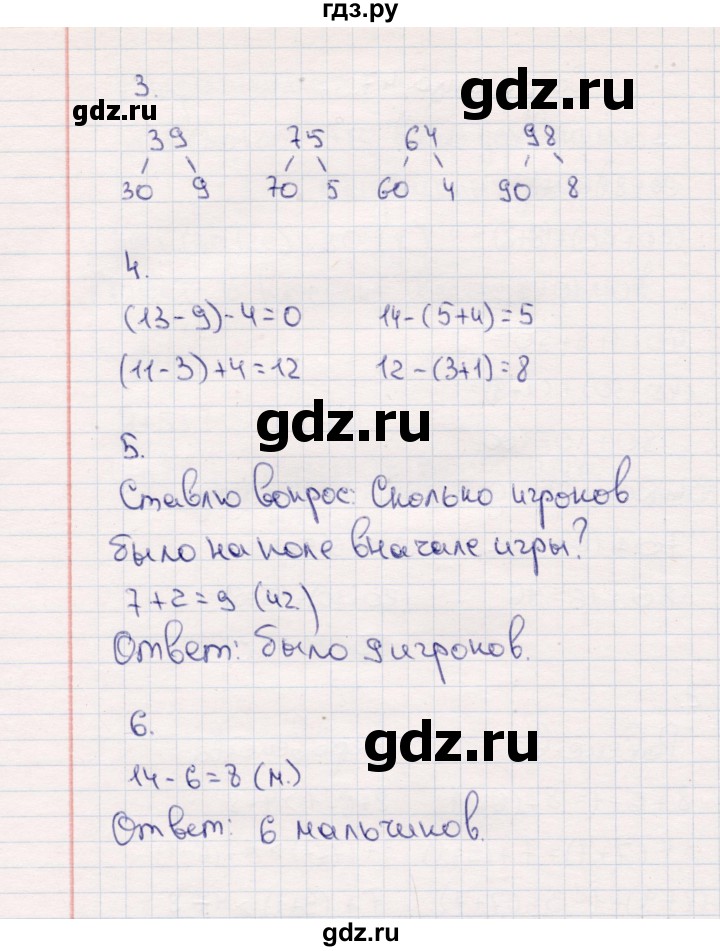 гдз.ру
3.
gdz.ru
gdz.ru
39 75 64 98
30 9 70 5 60 4 90 8
4.
(13-9)-4=0 14-(5+4)=5
(11-3)+4=12 12-(3+1)=8
gdz.ru
5.
Ставлю вопрос: Сколько игроков
было на поле вначале игры?
7+2=9 (иг.)
Ответ: было 9 игроков.
6.
gdz.ru
14-6=8 (м.)
Ответ: 6 мальчиков.
gdz.ru